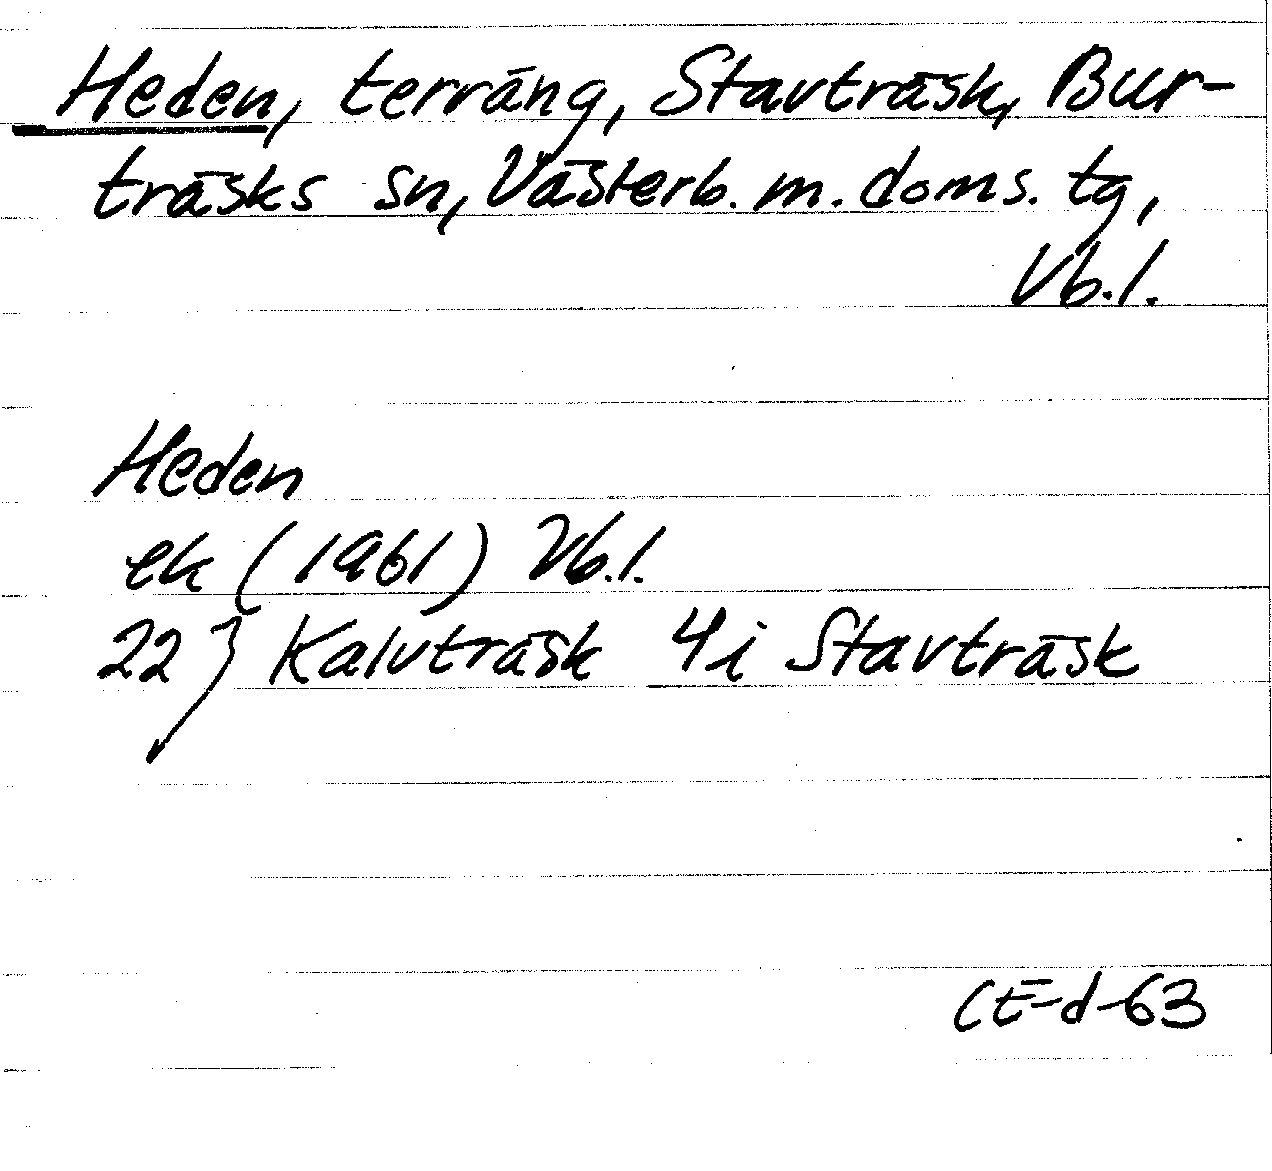 Heden, terräng, Stavträsk, Bur-
träsks sn, Västerb. m. doms. tg,
Vb.l.
Heden
ek (1961) Vb.l.
22 J Kalvträsk 4i Stavträsk
CE-d-63